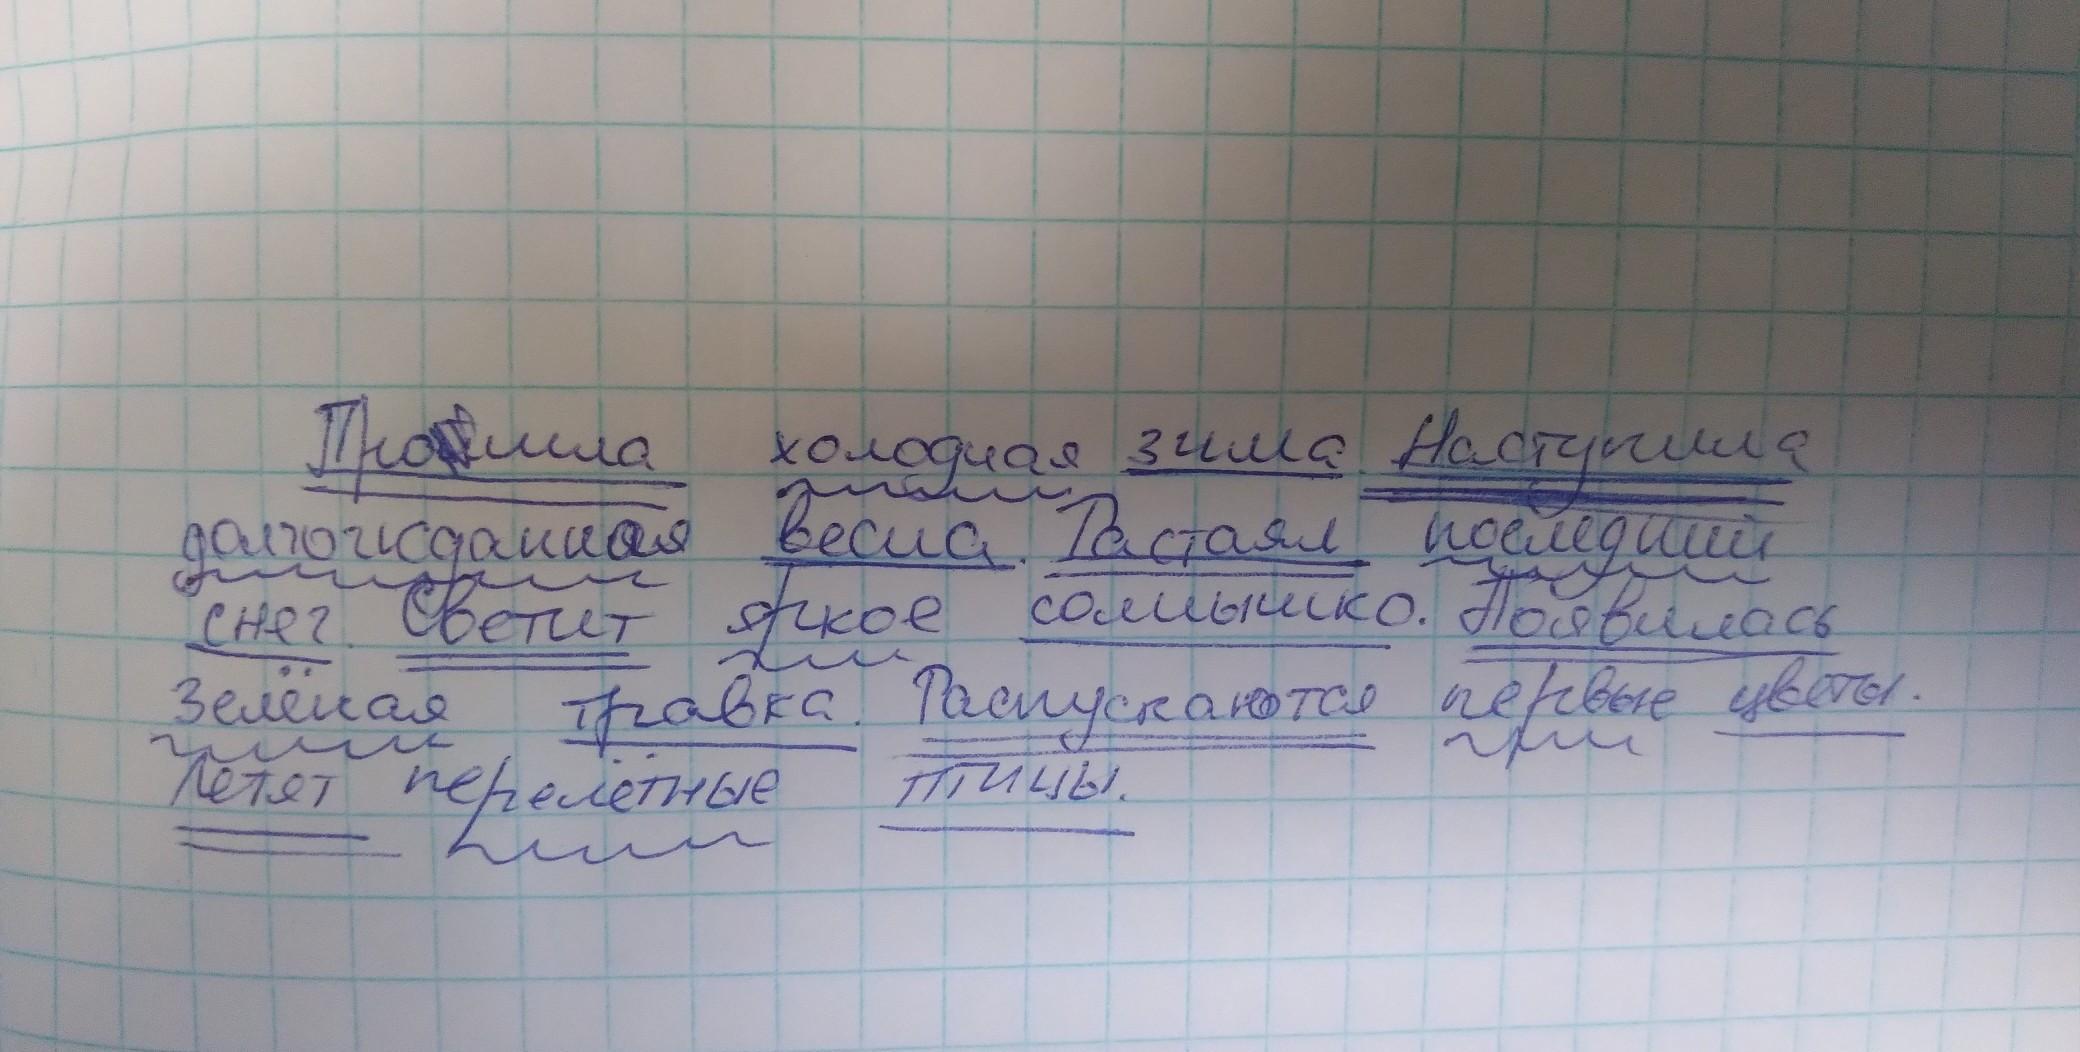 Прошла холодная зима. Наступила
долгожданная весна. Растаял последний
снег. Светит яркое солнышко. Появилась
Зелёная травка. Распускаются первые цветы.
Летят перелётные птицы.